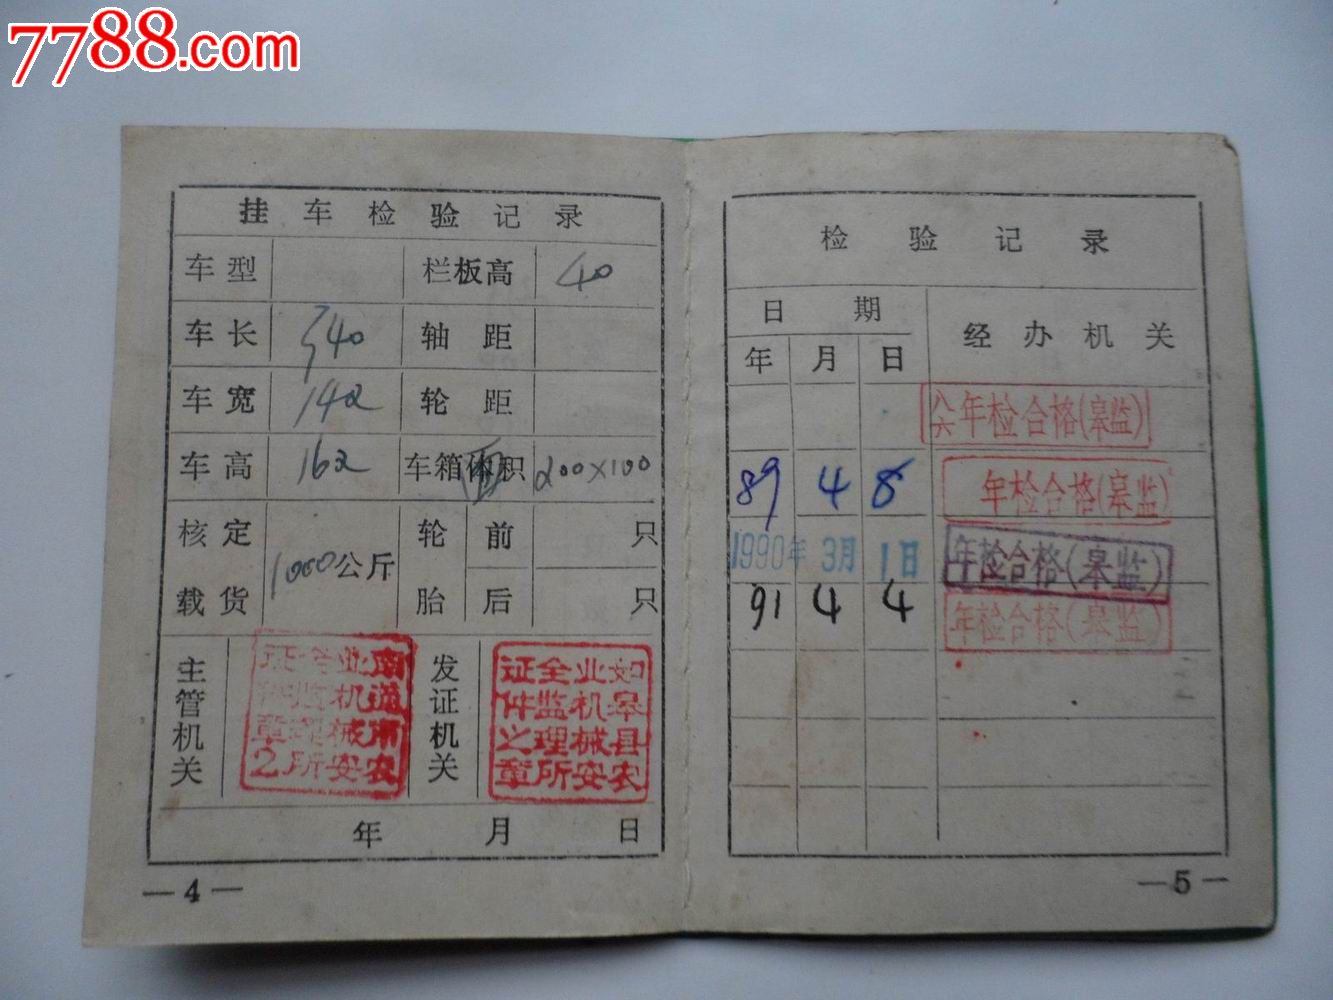 7788.com
挂车检验记录
车型 栏板高 40
车长 340 轴距
车宽 142 轮距
车高 162 车箱面积 200×100
核定载货 1000公斤 轮胎 前 只
后 只
主管机关 发证机关
如皋县农业机械安全监理所证件之章
年 月 日
—4—
检验记录
日期 经办机关
年 月 日
八六年检合格(皋监)
89 4 8 年检合格(皋监)
1990年 3月 1日 年检合格(皋监)
91 4 4 年检合格(皋监)
—5—